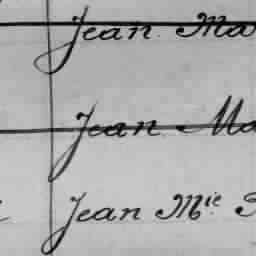 Jean Ma
Jean Ma
Jean Mie